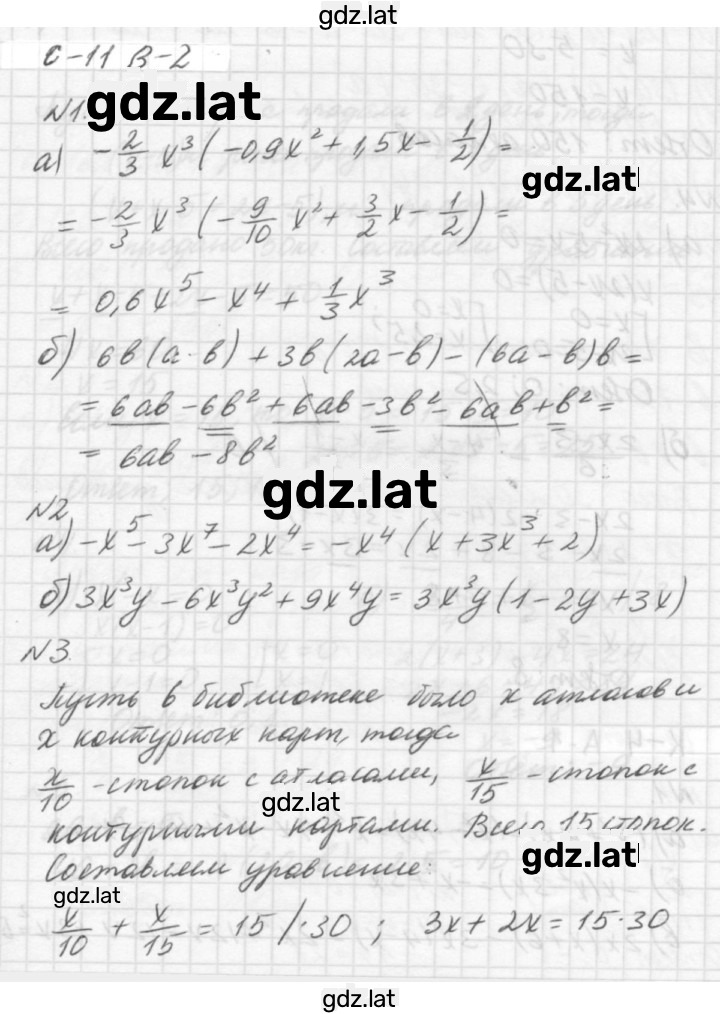 gdz.lat
С-11 В-2
№1. gdz.lat
а) -2/3 x³ (-0,9x² + 1,5x - 1/2) =
gdz.lat
= -2/3 x³ (-9/10 x² + 3/2 x - 1/2) =
= 0,6x⁵ - x⁴ + 1/3 x³
б) 6в(а-в) + 3в(2а-в) - (6а-в)в =
= 6ав - 6в² + 6ав - 3в² - 6ав + в² =
= 6ав - 8в²
gdz.lat
№2
а) -x⁵ - 3x⁷ - 2x⁴ = -x⁴ (x + 3x³ + 2)
б) 3x³y - 6x³y² + 9x⁴y = 3x³y (1 - 2y + 3x)
№3.
Пусть в библиотеке было x атласов и
x контурных карт, тогда
x/10 - стопок с атласами, x/15 - стопок с
gdz.lat
контурными картами. Всего 15 стопок.
gdz.lat
Составляем уравнение:
gdz.lat
x/10 + x/15 = 15 /·30 ; 3x + 2x = 15·30
gdz.lat